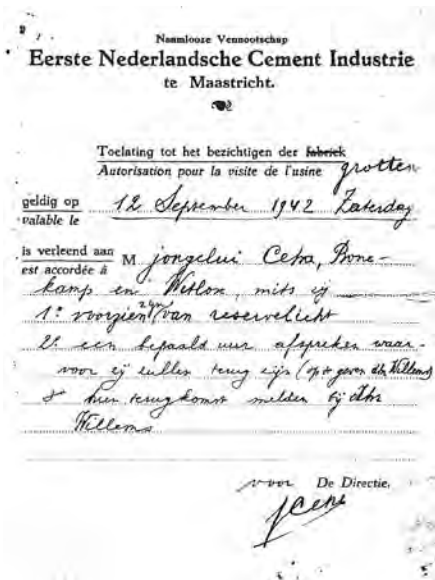 Naamlooze Vennootschap
Eerste Nederlandsche Cement Industrie
te Maastricht.
Toelating tot het bezichtigen der fabriek
Autorisation pour la visite de l'usine grotten
geldig op
valable le 12 September 1942 Zaterdag
is verleend aan
est accordée à M jongelui Cehn, Bone-
kamp en Witlox, mits zij
1º voorzien zijn van reservelicht
2º een bepaald uur afspreken waar-
voor zij zullen terug zijn (op te geven dhr Willems)
3º hun terugkomst melden bij dhr
Willems
voor De Directie.